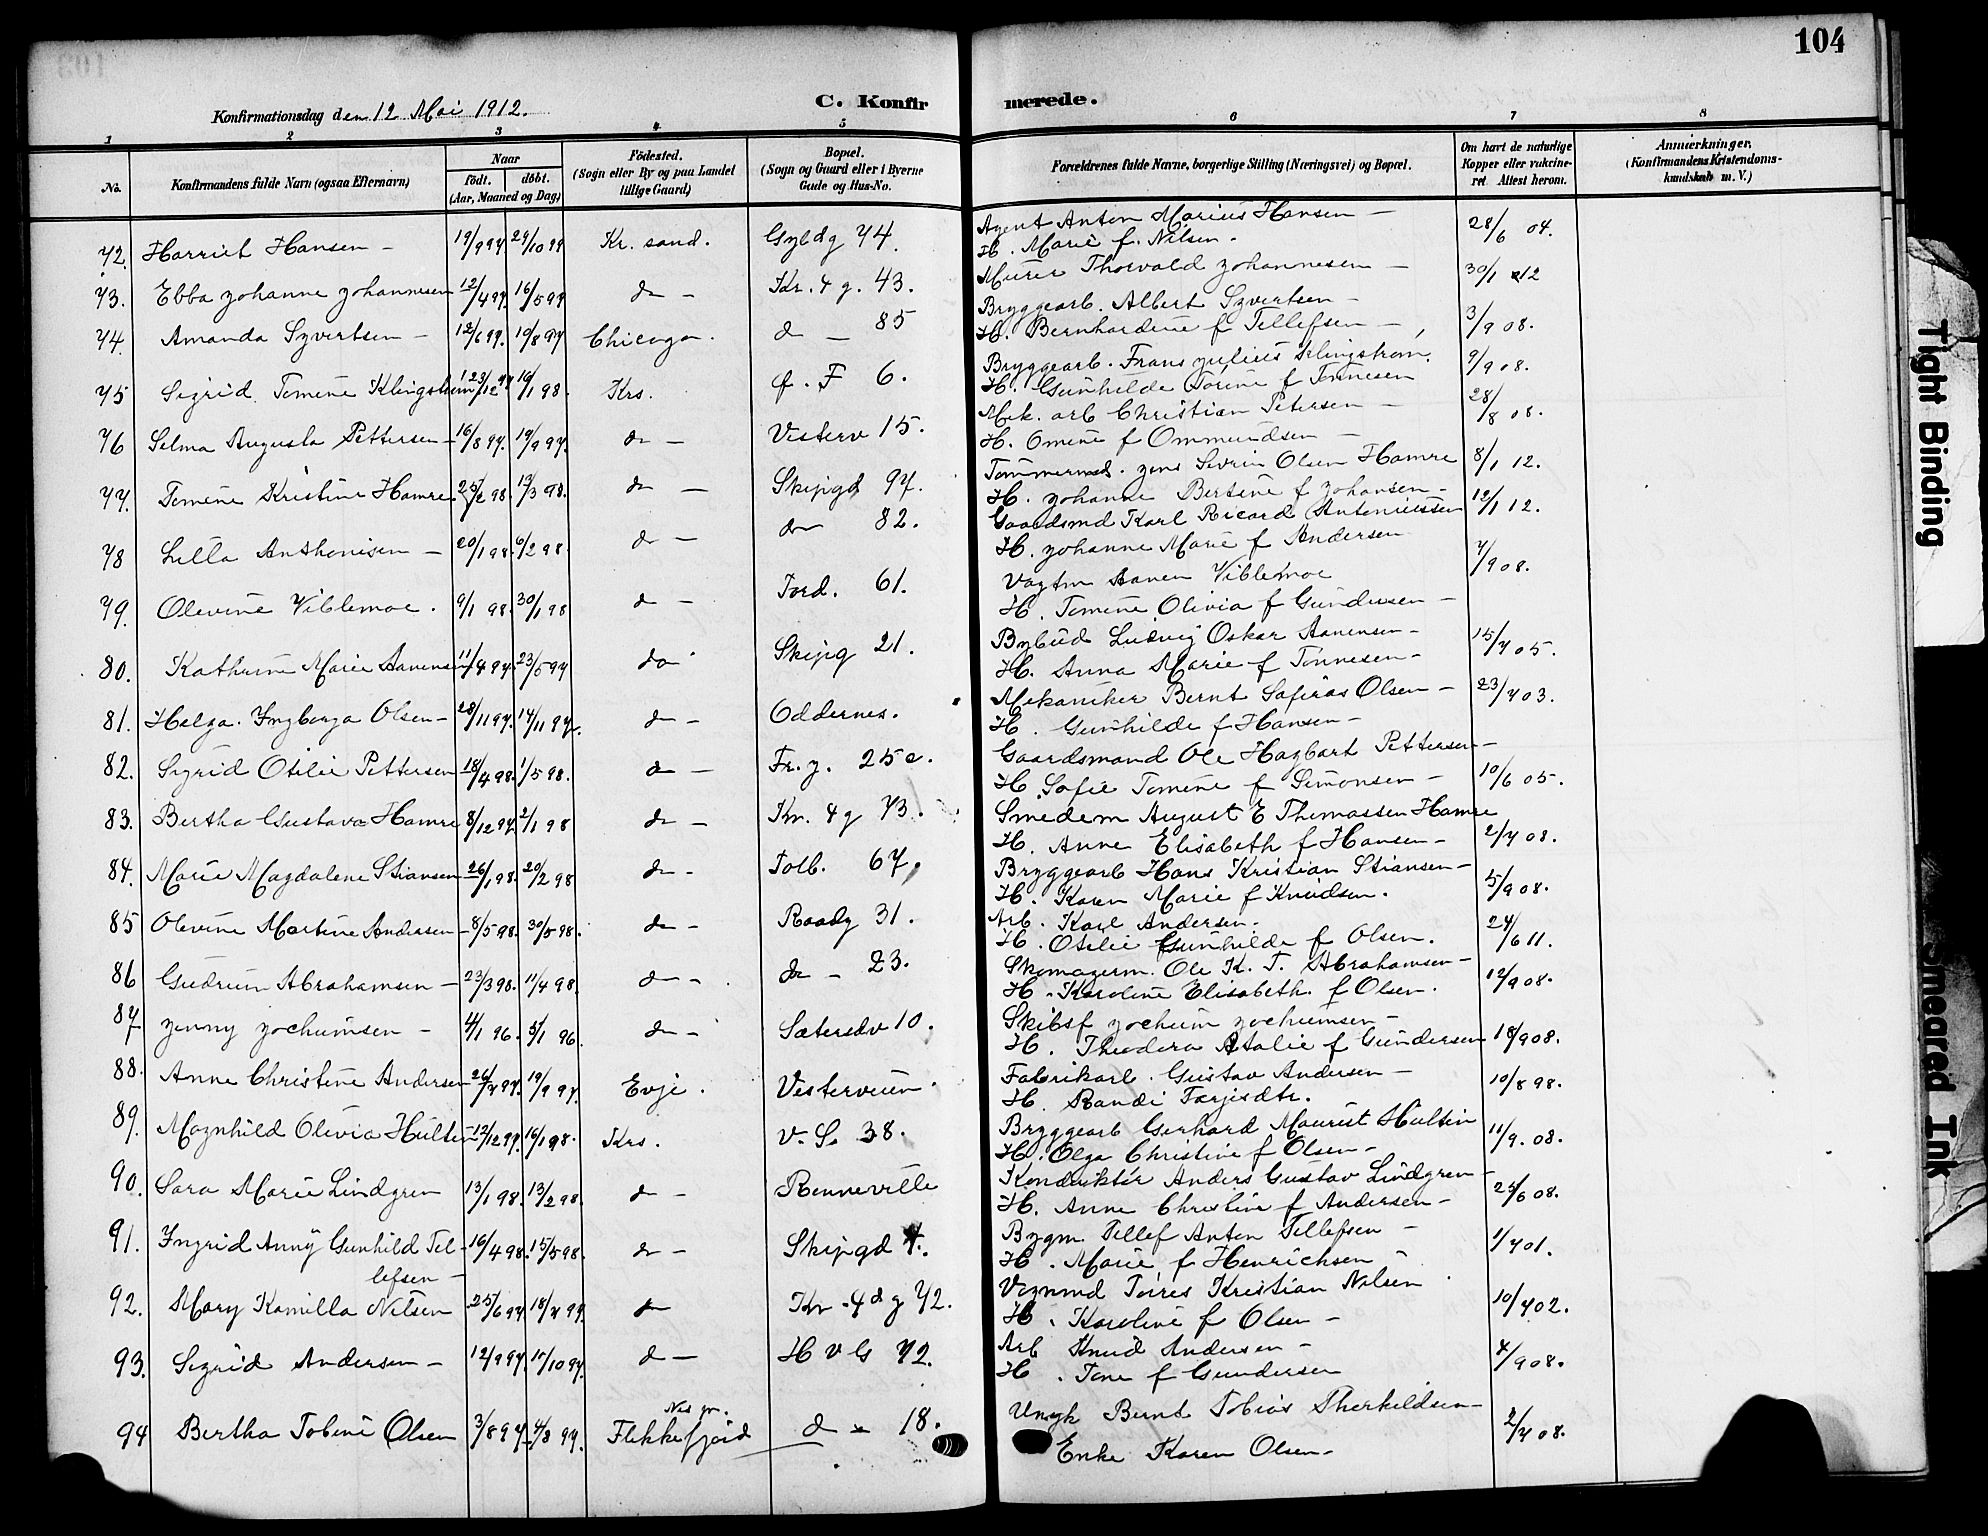 104
Konfirmationsdag den 12 Mai 1912.
C. Konfirmerede.
1 2 3 4 5 6 7 8
No.
Konfirmandens fulde Navn (ogsaa Efternavn)
Naar
født. døbt.
(Aar, Maaned og Dag)
Fødested.
(Sogn eller By og paa Landet
tillige Gaard)
Bopæl.
(Sogn og Gaard eller i Byerne
Gade og Hus-No.
Forældrenes fulde Navne, borgerlige Stilling (Næringsvei) og Bopæl.
Om havt de naturlige
Kopper eller vakcine-
ret Attest herom.
Anmærkninger.
(Konfirmandens Kristendoms-
kundskab m. V.)
72. Harriet Hansen - 19/9 97 29/10 99 Kr. sand. Gyldg 74. Agent Anton Marius Hansen - 28/6 04.
H. Marie f. Nilsen.
73. Ebba Johanne Johannesen 12/4 97 16/5 97 do - Kr. 4 g. 43. Murer Thorvald Johannesen - 30/1 12
74. Amanda Syvertsen - 12/6 97. 19/8 97 Chicago. d - 85 Bryggearb. Albert Syvertsen -
H. Bernhardine f Tellefsen - 3/9 08.
75 Sigrid Tomine Klingstrøm 23/12 97 16/1 98. Krs. f. F 6. Bryggearb. Frans Julius Klingstrøm. 9/9 08.
H. Gunhilde Torine f Tønnesen
76 Selma Augusta Pettersen - 16/8 97. 19/9 97. do - Vesterv 15. Mek. arb Christian Petersen - 28/8 08.
H. Omine f Ommundsen -
77. Tomine Kristine Hamre. 25/2 98. 13/3 98. do - Skipgd 97. Tømmermd. Jens Sevrin Olsen Hamre 8/1 12.
H. Johanne Bertine f Johansen -
78 Lilla Anthonisen - 20/1 98. 6/2 98. do - do 82. Gaardsmd Karl Ricard Antoniussen 12/1 12.
H. Johanne Marie f Andersen
79. Olevine Viblemoe. 9/1 98. 30/1 98 do - Tord. 61. Vagtm Aanen Viblemoe 7/9 08.
H. Tomine Olivia f Gundersen -
80. Kathrine Marie Aanensen 11/4 97. 23/5 97 do Skipg 21. Bybud Ludvig Oskar Aanensen - 15/7 05.
H. Anna Marie f Tønnesen -
81. Helga Ingborga Olsen - 28/11 97. 14/11 97. do - Oddernes. Mekaniker Bernt Safiras Olsen - 23/7 03.
H. Gunhilde f Hansen -
82. Sigrid Otilie Pettersen 18/4 98. 1/5 98. do - Fr. g. 25 c. Gaardsmand Ole Hagbart Pettersen -
H. Sofie Tomine f Simonsen - 10/6 05.
83. Bertha Gustava Hamre 8/12 97. 2/1 98 do - Kr. 4 g 73. Smedem August E Thomassen Hamre
H. Anne Elisabeth f Hansen - 2/7 08.
84. Marie Magdalene Stiansen 26/1 98. 20/2 98 do - Tolb. 67. Bryggearb Hans Kristian Stiansen -
H. Karen Marie f Knudsen. 5/9 08.
85 Olevine Martine Andersen - 8/5 98. 30/5 98. do - Raadg 31. Arb. Karl Andersen.
H. Otilie Gunhilde f Olsen. 24/6 11.
86 Gudrun Abrahamsen - 23/3 98. 11/4 98. do - do - 23. Skomagerm. Ole K. T. Abrahamsen -
H. Karoline Elisabeth f Olsen. 12/9 08.
87 Jenny Jochumsen - 4/1 96. 5/1 96. do - Sætersdv 10. Skibsf Jochum Jochumsen -
H. Theodora Atalie f Gundersen 18/9 08.
88. Anne Christine Andersen 26/7 97. 19/9 97. Evje. Vesterveien. Fabrikarb. Gustav Andersen -
H. Randi Tarjisdtr. 10/8 98.
89. Magnhild Olivia Hultin 12/12 97. 16/1 98. Krs. V. S. 38. Bryggearb Gerhard Maurist Hultin
H. Olga Christine f Olsen - 11/9. 08.
90. Sara Marie Lindgren 13/1 98. 13/2 98. do - Renneville Konduktør Anders Gustav Lindgren -
H. Anne Christine f Andersen - 25/6 08.
91. Ingrid Anny Gunhild Tel- 16/4 98. 15/5 98. do - Skipgd 4. Bygm Tellef Anton Tellefsen - 1/7 01.
lefsen - H. Marie f Henrichsen -
92. Mary Kamilla Nilsen 25/6 97. 18/7 97. do Kr. 4d g 72. Vognmd Torres Kristian Nilsen
H. Karoline f Olsen - 10/7 02.
93. Sigrid Andersen - 12/9 97. 17/10 97. do - H v G 72. Arb Knud Andersen -
H. Tone f Gundersen 7/9 08.
94 Bertha Tobine Olsen 3/8 97. 4/8 97. Flekkefjord d - 18. Ungk Bernt Tobias Therkildsen -
Enke Karen Olsen - 2/7 08.
Tight Binding
Smeared Ink